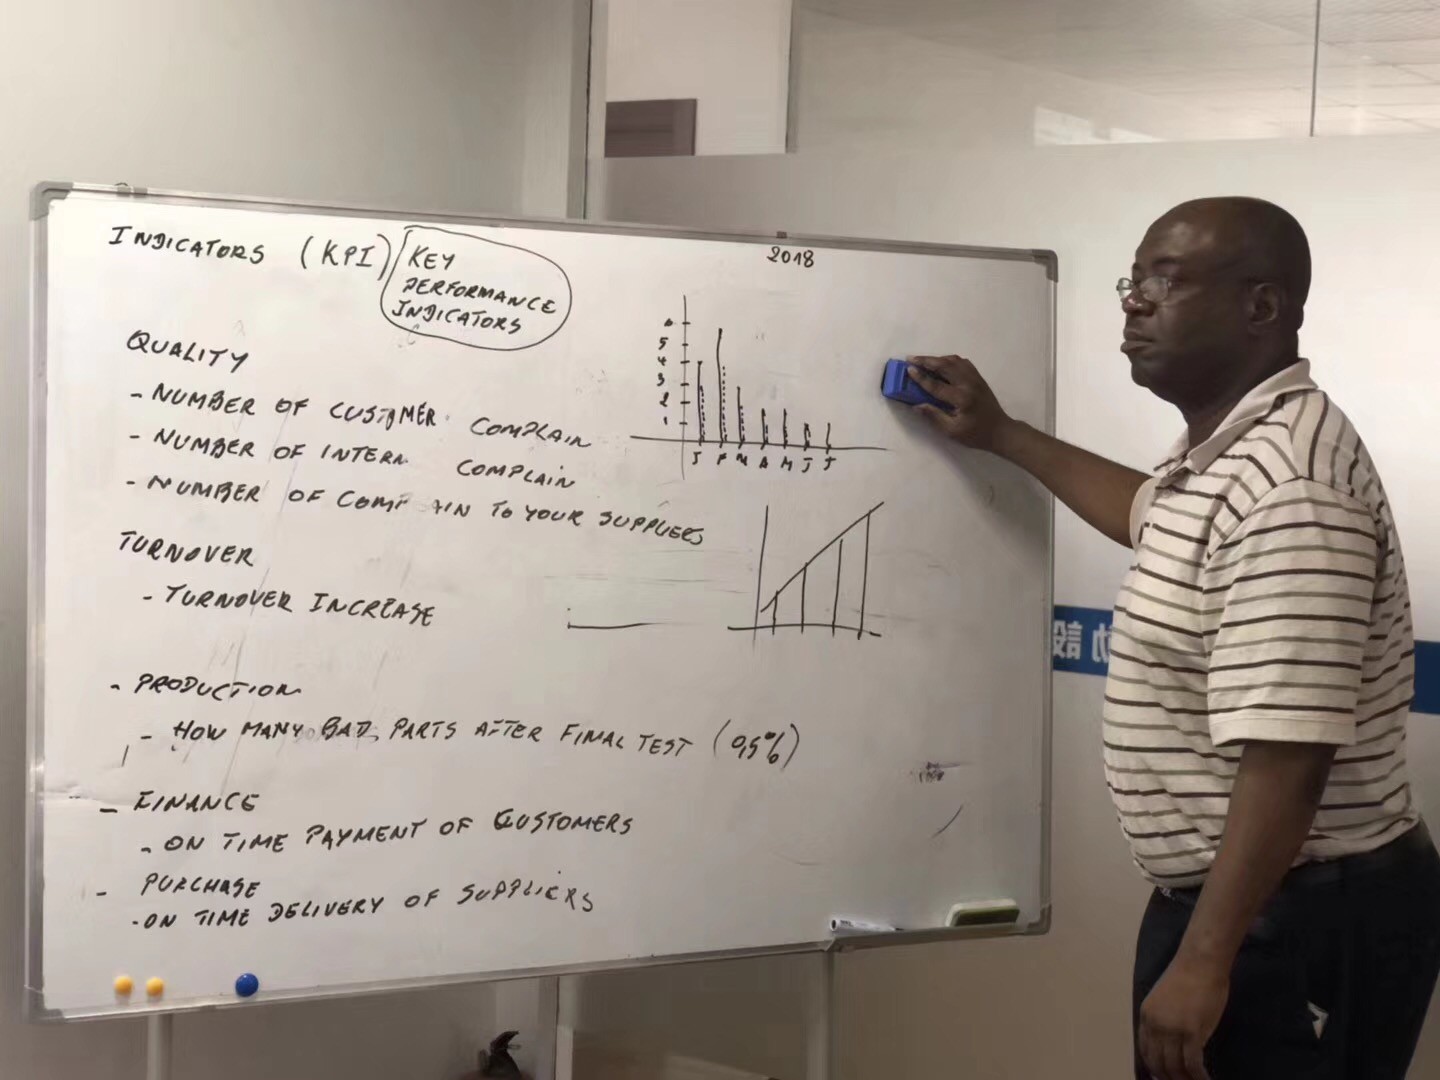 INDICATORS (KPI) KEY
PERFORMANCE
INDICATORS
2018
QUALITY
- NUMBER OF CUSTOMER COMPLAIN
- NUMBER OF INTERN COMPLAIN
- NUMBER OF COMPLAIN TO YOUR SUPPLIERS
6
5
4
3
2
1
J F M A M J J
TURNOVER
- TURNOVER INCREASE
- PRODUCTION
- HOW MANY BAD PARTS AFTER FINAL TEST (0,5%)
- FINANCE
- ON TIME PAYMENT OF CUSTOMERS
- PURCHASE
- ON TIME DELIVERY OF SUPPLIERS